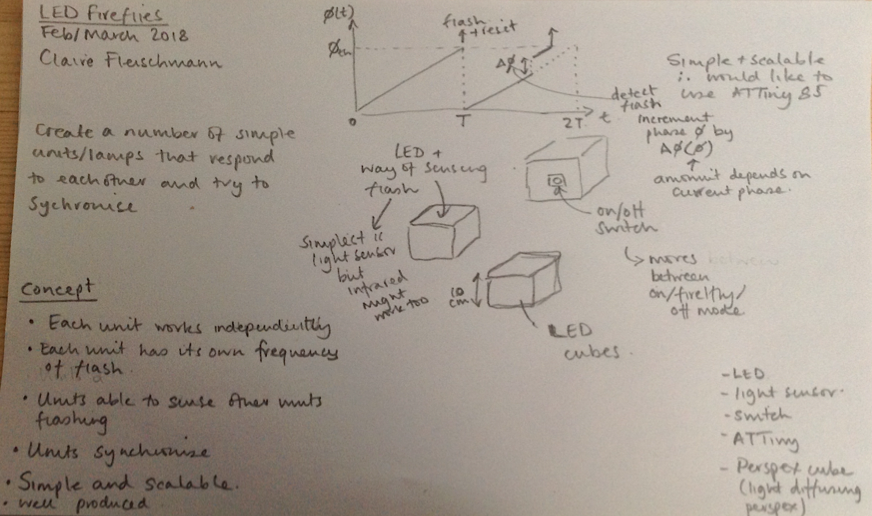 LED Fireflies
Feb/March 2018
Claire Fleischmann
Create a number of simple
units/lamps that respond
to eachother and try to
Sychronise
Concept
• Each unit works independently
• Each unit has its own frequency
of flash.
• Units able to sense other units
flashing
• Units synchronise
• Simple and scalable.
• well produced
φ(t)
φth
flash
+ reset
Δφ
0
T
2T
t
detect
flash
increment
phase φ by
Δφ(φ)
amount depends on
current phase.
Simple + scalable
∴ would like to
use ATTiny 85
LED +
way of sensing
flash
simplest is
light sensor
but
infrared
might
work too
on/off
switch
moves between
between
on/firefly/
off mode
10
cm
LED
cubes.
- LED
- light sensor.
- switch
- ATTiny
- Perspex cube
(light diffusing
perspex)